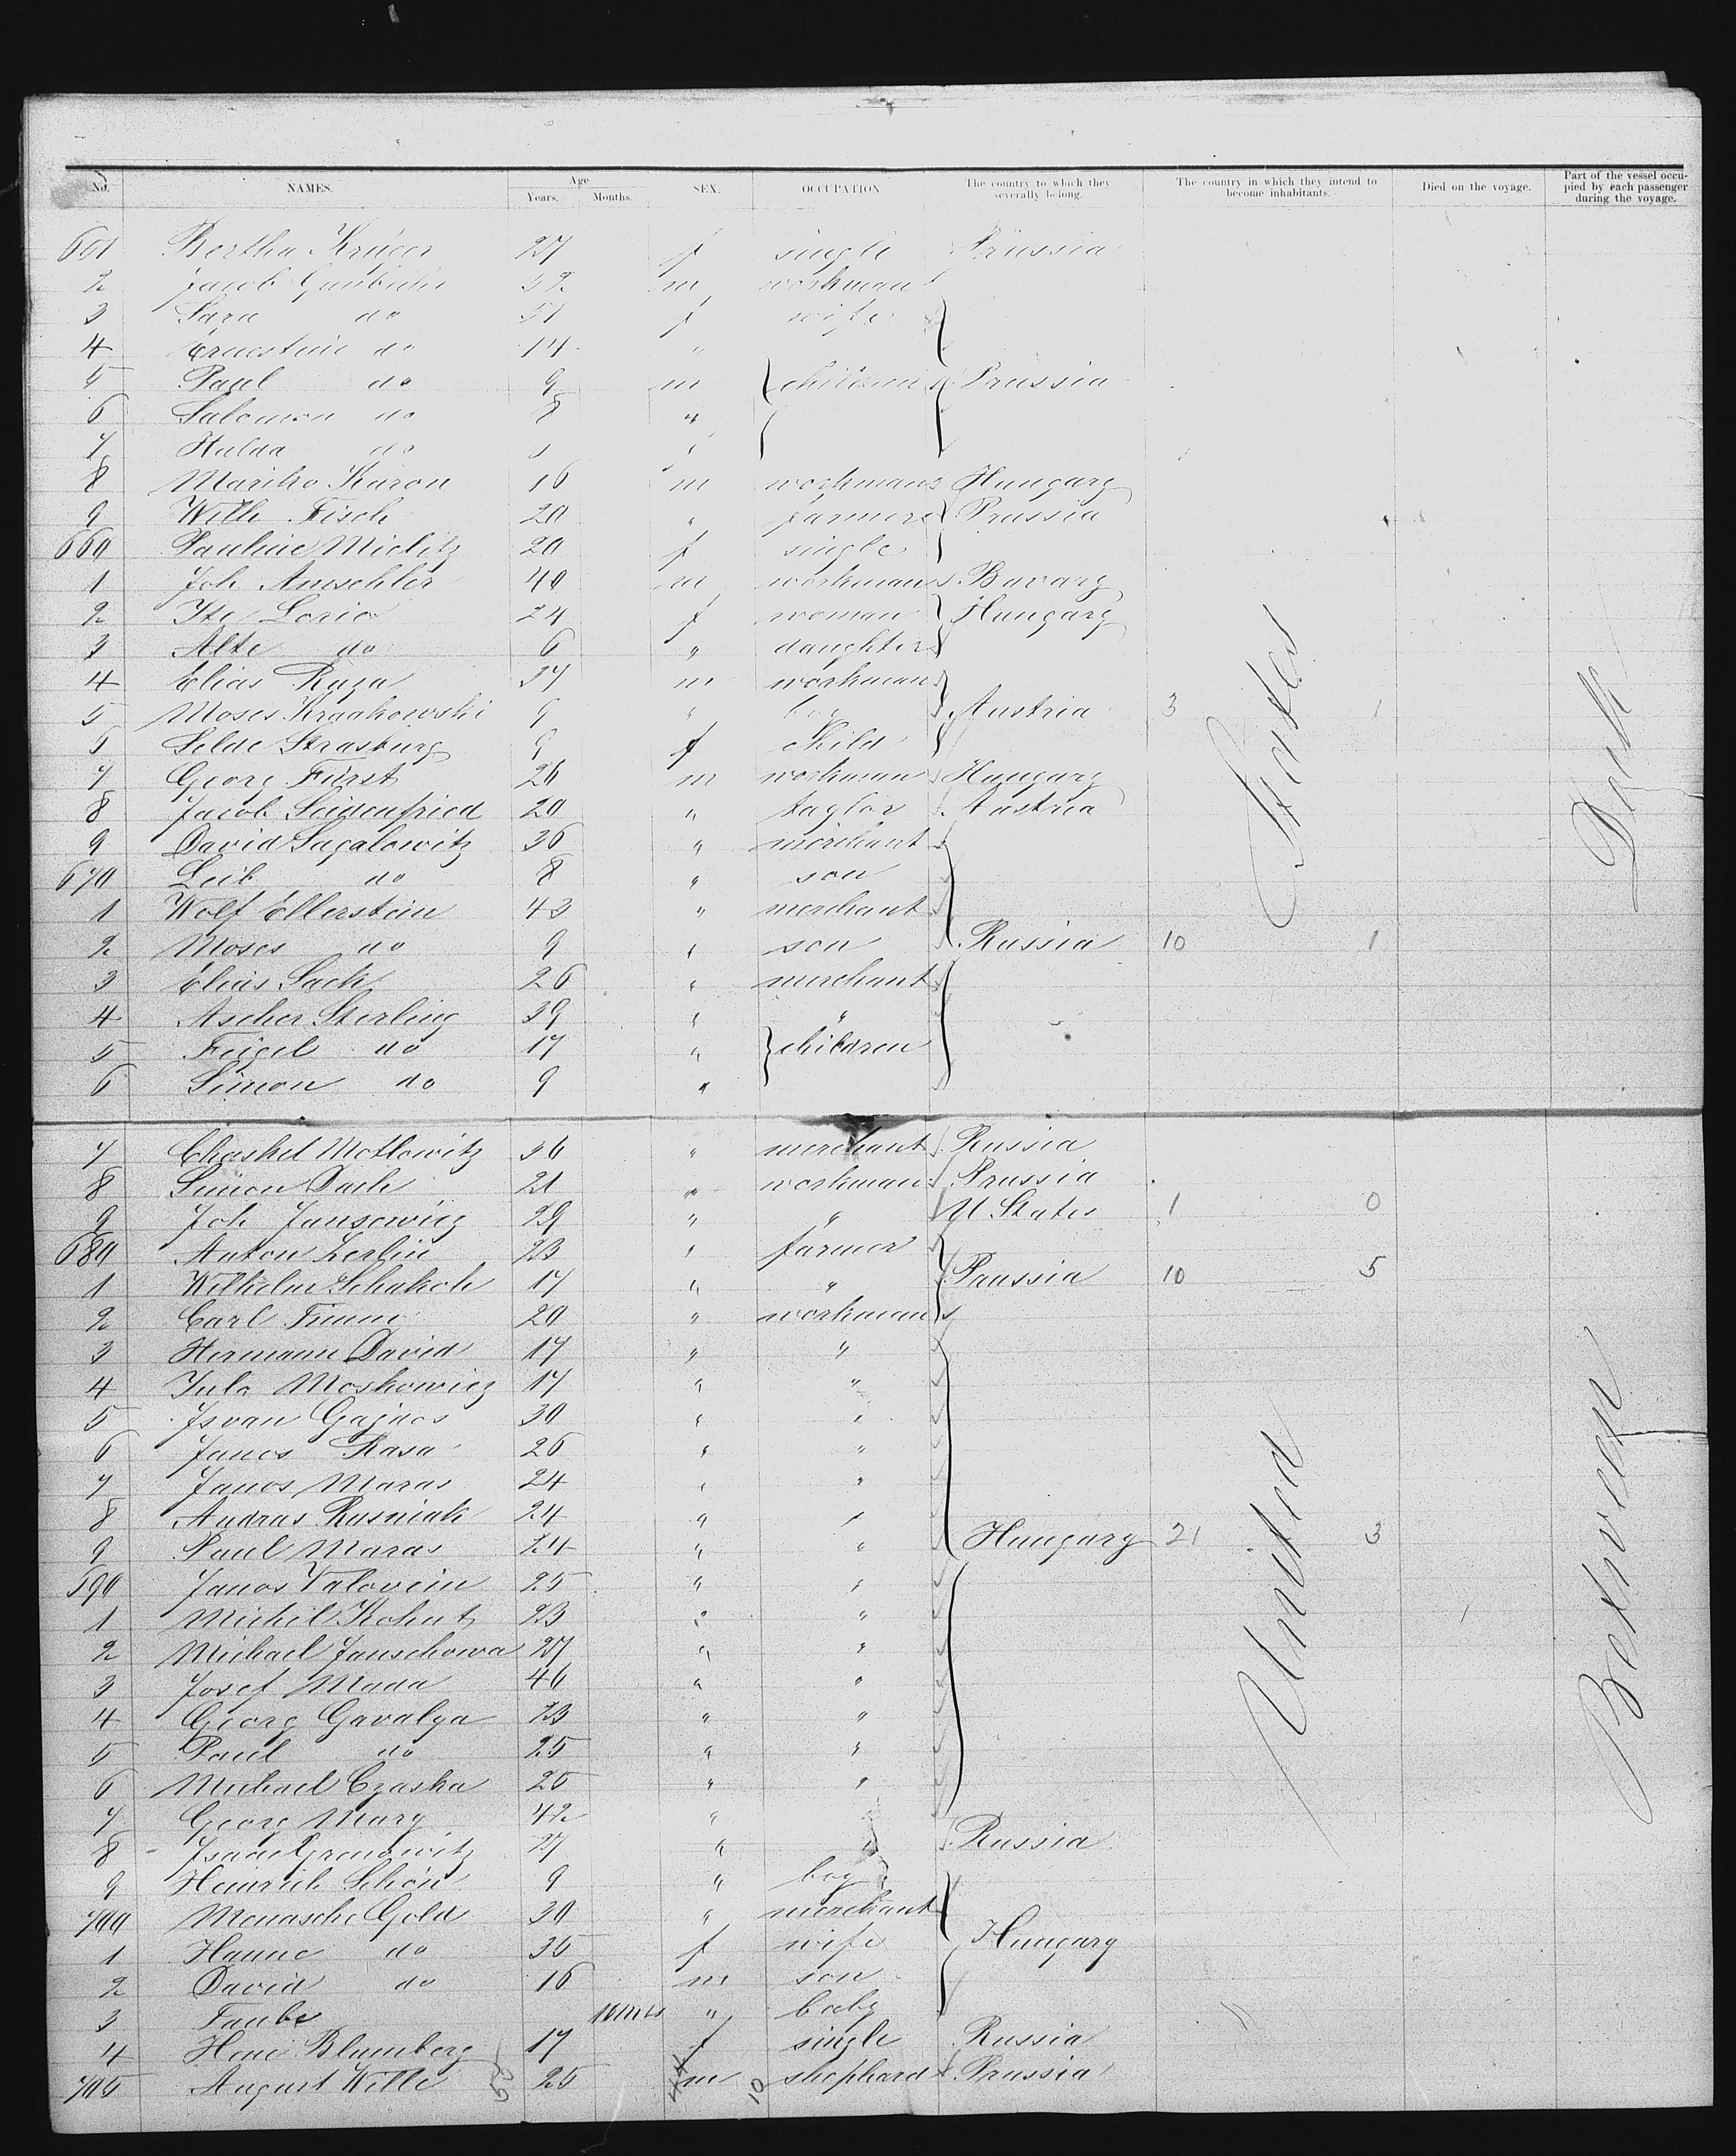 No. NAMES. Age Years. Months. SEX. OCCUPATION The country to which they severally belong. The country in which they intend to become inhabitants. Died on the voyage. Part of the vessel occupied by each passenger during the voyage.
651 Bertha Krüger 27 f single Prussia
2 Jacob 52 m workman
3 Sara do 51 f wife
4 Ernestine do 14 "
5 Paul do 9 m children Prussia
6 Salomon do 8 "
7 Hulda do "
8 Mariko Karon 16 m workman Hungary
9 Wilh Fisch 20 " farmer Prussia
660 Pauline Mielitz 20 f single
1 Joh. Amschler 40 m workman Bavary
2 Ite Lorio 24 f woman Hungary
3 Alte do 6 " daughter
4 Elias Ruza 37 m workman
5 Moses Kraakowski 9 " boy Austria 3 1
6 Selde Strasburg 9 f child
7 Georg Fürst 26 m workman Hungary
8 Jacob Seidenfried 20 " taylor Austria
9 David Sagalowitz 36 " merchant
670 Leib do 8 " son
1 Wolf Ellerstein 43 " merchant
2 Moses do 9 " son Russia 10 1
3 Elias Sack 26 " merchant
4 Ascher Sterling 39 " "
5 Feigel do 17 " children
6 Simon do 9 "
7 Chaskel Motlowitz 36 " merchant Russia
8 Simon Dach 21 " workman Prussia
9 Joh Jansowicz 29 " " U States 1 0
680 Anton Zerlin 23 " farmer
1 Wilhelm Schakoh 17 " " Prussia 10 5
2 Carl Timm 20 " workman
3 Hermann David 17 " "
4 Jula Moskowicz 17 " "
5 Isvan Gajnos 30 " "
6 Janos Rasa 26 " "
7 Janos Maras 24 " "
8 Andras Rusniak 24 " "
9 Paul Maras 24 " " Hungary 21 3
690 Janos Valovcin 25 " "
1 Michel Kohut 23 " "
2 Michael Janschowa 27 " "
3 Josef Mada 46 " "
4 Georg Gavalya 23 " "
5 Paul do 25 " "
6 Michael Czaska 25 " "
7 Georg Mary 42 " "
8 Isaac Gronowitz 27 " " Russia
9 Heinrich Schön 9 " boy
700 Menasche Gold 30 " merchant
1 Hanne do 35 f wife Hungary
2 David do 16 m son
3 Taube 10 mts " baby
4 Hene Blumberg 17 f single Russia
705 August Wille 25 m shephard Prussia
44 10
United States
Betwween Deck